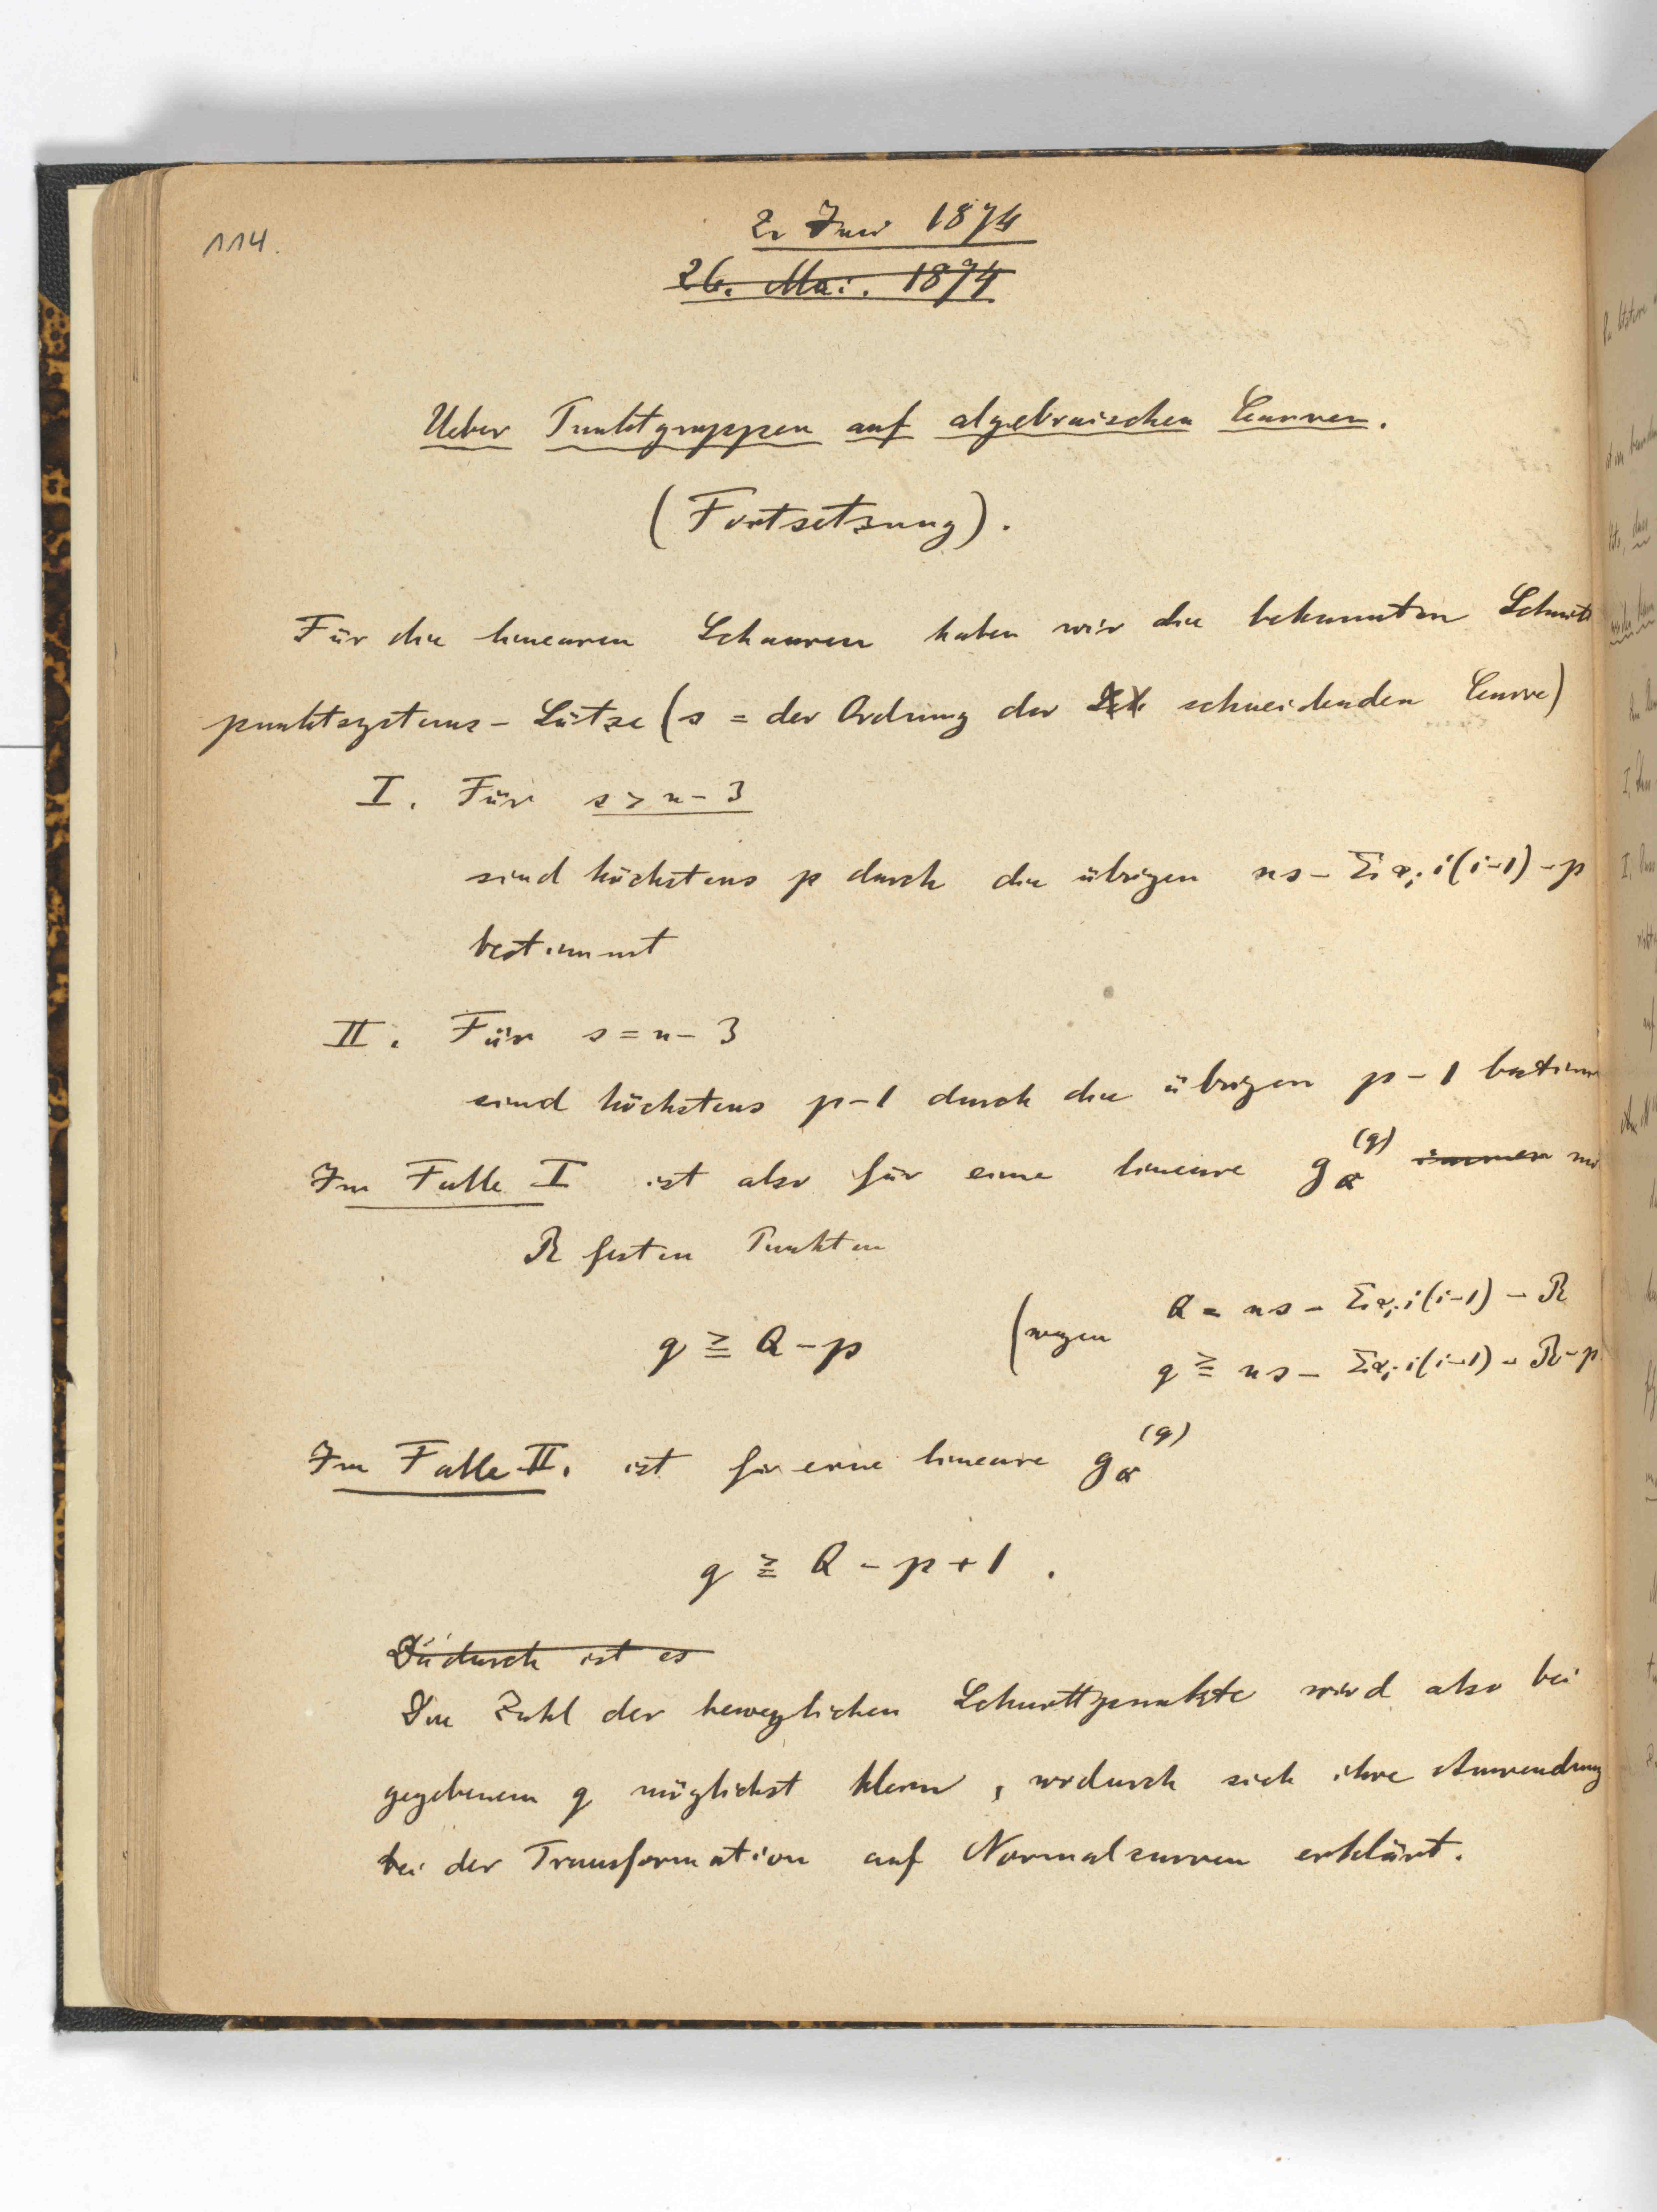 114.
2. Juni 1874
26. Mai. 1874
Ueber Punktgruppen auf algebraischen Curven.
(Fortsetzung).
Für die linearen Schaaren haben wir die bekannten Schnitt
punktsystems-Sätze (s = der Ordnung der schneidenden Curve)
I. Für s > n-3
sind höchstens p durch die übrigen ns - Σαᵢ i(i-1) - p
bestimmt
II. Für s = n-3
sind höchstens p-1 durch die übrigen p-1 bestimm
Im Falle I ist also für eine lineare g_Q^(q) immer
R festen Punkten
q ≧ Q-p (wegen Q = ns - Σαᵢ i(i-1) - R
q ≧ ns - Σαᵢ i(i-1) - R - p
Im Falle II. ist für eine lineare g_Q^(q)
q ≧ Q - p + 1.
Dadurch ist es
Die Zahl der beweglichen Schnittpunkte wird also bei
gegebenem q möglichst klein, wodurch sich ihre Anwendung
bei der Transformation auf Normalcurven erklärt.